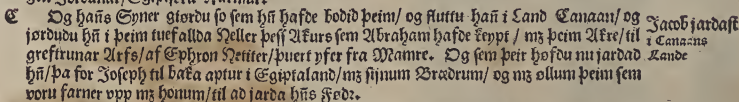 C Og hañs Syner giørdu so sem hñ hafde bodid þeim/ og fluttu hañ i Land Canaan/ og
jørdudu hñ i þeim tuefallda Heller þess Akurs sem Abraham hafde keypt / mz þeim Akre/til
greftrunar Arfs/af Ephron Hetiter/þuert yfer fra Mamre. Og sem þeir høfdu nu jardad
hñ/þa for Joseph til baka aptur i Egiptaland/mz sijnum Brædrum/ og mz øllum þeim sem
voru farner vpp mz honum/til ad jarda hñs Fødr.
Jacob jardast
i Canaans
Lande